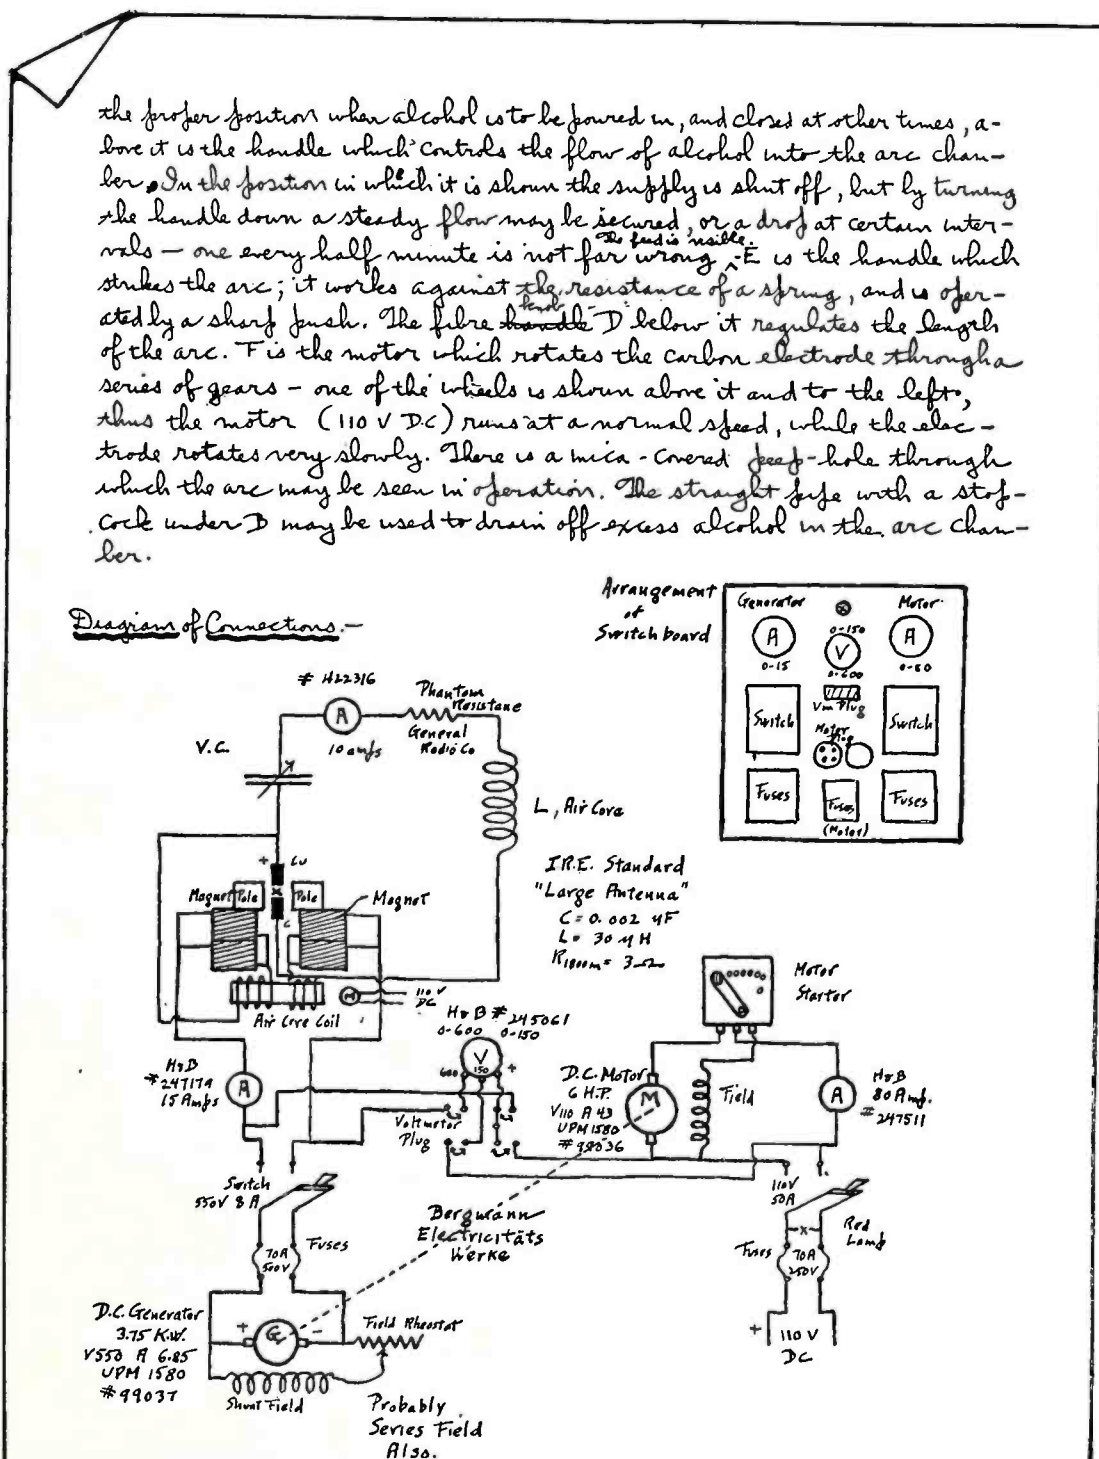 the proper position when alcohol is to be poured in, and closed at other times, a-
bove it is the handle which controls the flow of alcohol into the arc cham-
ber. In the position in which it is shown the supply is shut off, but by turning
the handle down a steady flow may be secured, or a drop at certain inter-
vals — one every half minute is not far wrong. The feed is visible. E is the handle which
strikes the arc; it works against the resistance of a spring, and is oper-
ated by a sharp push. The fibre handle knob D below it regulates the length
of the arc. F is the motor which rotates the carbon electrode through a
series of gears — one of the wheels is shown above it and to the left,
thus the motor (110 V D.C) runs at a normal speed, while the elec-
trode rotates very slowly. There is a mica-covered peep-hole through
which the arc may be seen in operation. The straight pipe with a stop-
cock under D may be used to drain off excess alcohol in the arc cham-
ber.
Arrangement
of
Switchboard
Generator
Motor
A
0-15
0-150
V
0-600
A
0-80
Vm Plug
Switch
Motor
Plug
Switch
Fuses
Fuses
(Motor)
Fuses
Diagram of Connections.—
# 422316
A
10 amps
Phantom
Resistane
General
Radio Co
V.C.
L, Air Core
+ Cu
Magnet
Pole
Pole
Magnet
C
I.R.E. Standard
"Large Antenna"
C = 0.002 µF
L = 30 µH
R1800m = 3 Ω
Air Core Coil
M
110 V
DC
H&B # 245061
0-600 0-150
V
150
600
+
Motor
Starter
H&B
# 247179
15 Amps
A
Voltmeter
Plug
D.C. Motor
6 H.P.
V110 A 43
UPM 1580
# 99036
M
Field
A
H&B
80 Amp.
# 247511
Switch
550V 8A
110V
50A
Red
Lamp
x
Bergmann
Electricitäts
Werke
70A
500V
Fuses
Fuses
70A
250V
D.C. Generator
3.75 K.W.
V550 A 6.85
UPM 1580
# 99037
+
G
-
Field Rheostat
Shunt Field
Probably
Series Field
Also.
+ 110 V
DC